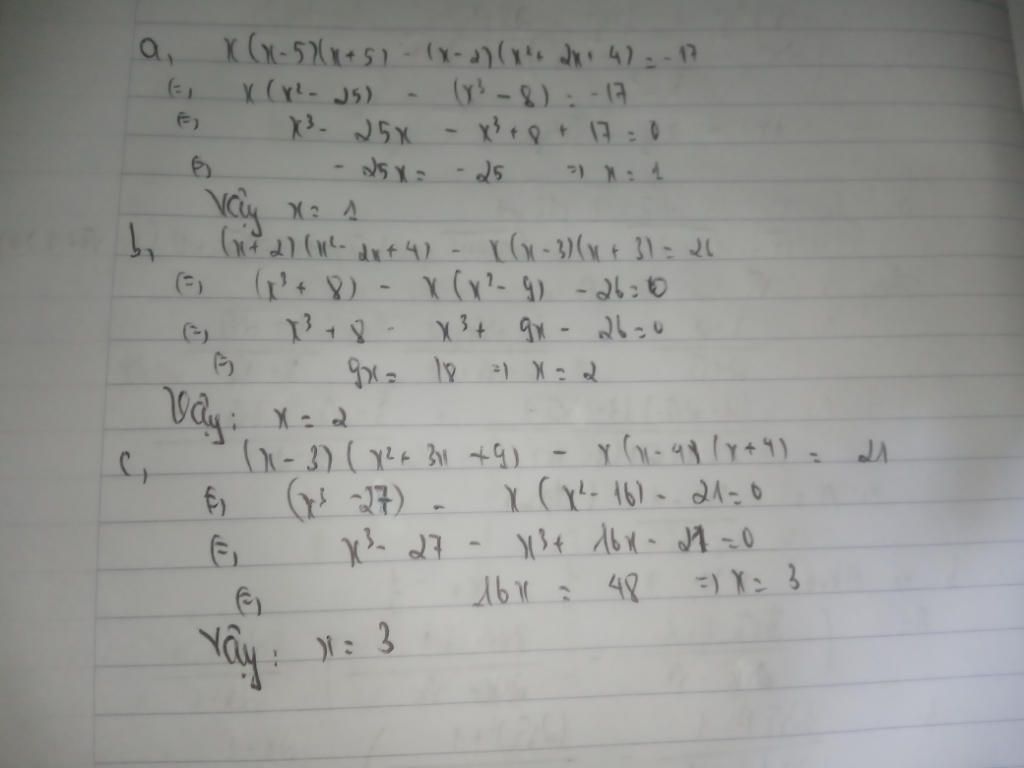 a, x(x-5)(x+5) - (x-2)(x²+ 2x+4) = -17
(=) x(x²- 25) - (x³ - 8) = -17
(=) x³ - 25x - x³ + 8 + 17 = 0
(=) - 25x = - 25 => x = 1
Vậy x = 1
b, (x+2)(x²- 2x+4) - x(x-3)(x+3) = 26
(=) (x³ + 8) - x(x²- 9) - 26 = 0
(=) x³ + 8 - x³ + 9x - 26 = 0
(=) 9x = 18 => x = 2
Vậy: x = 2
c, (x-3)(x²+ 3x +9) - x(x-4)(x+4) = 21
(=) (x³ -27) - x(x²- 16) - 21 = 0
(=) x³ - 27 - x³ + 16x - 21 = 0
(=) 16x = 48 => x = 3
Vậy: x = 3